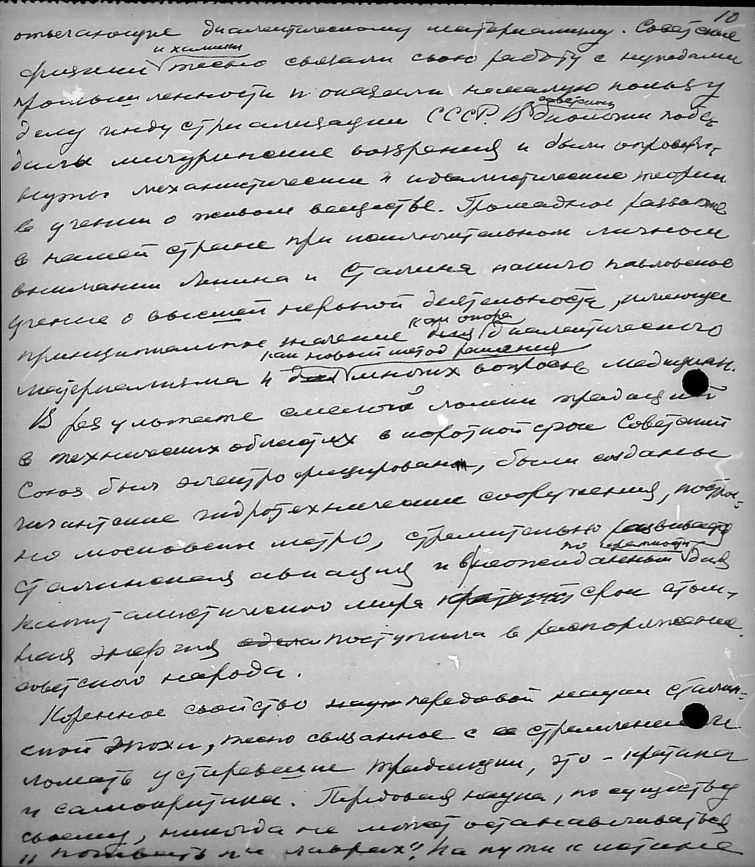 10
отвечающую диалектическому материализму. Советские
и химики
физики тесно связали свою работу с нуждами
промышленности и оказали немалую пользу
советской
делу индустриализации СССР. В биологии побе-
дили мичуринские воззрения и были опроверг-
нуты механистические и идеалистические теории
в учении о живом веществе. Громадное развитие
в нашей стране при исключительном личном
внимании Ленина и Сталина нашло павловское
учение о высшей нервной деятельности, имеющее
как опора
принципиальное значение для диалектического
как новый метод решения
материализма и для многих вопросов медицин.
В результате смелой ломки традиций
в технических областях в короткий срок Советский
Союз был электрофицирован, были созданы
гигантские гидротехнические сооружения, построе-
но московское метро, стремительно развивается
по краткости
сталинская авиация и в неожиданный для
капиталистического мира краткий срок атом-
ная энергия поступила в распоряжение
советского народа.
Коренное свойство передовой науки сталин-
ской эпохи, тесно связанное с ее стремлением
ломать устаревшие традиции, это - критика
и самокритика. Передовая наука, по существу
своему, никогда не может останавливаться
и "почивать на лаврах". На пути к истине